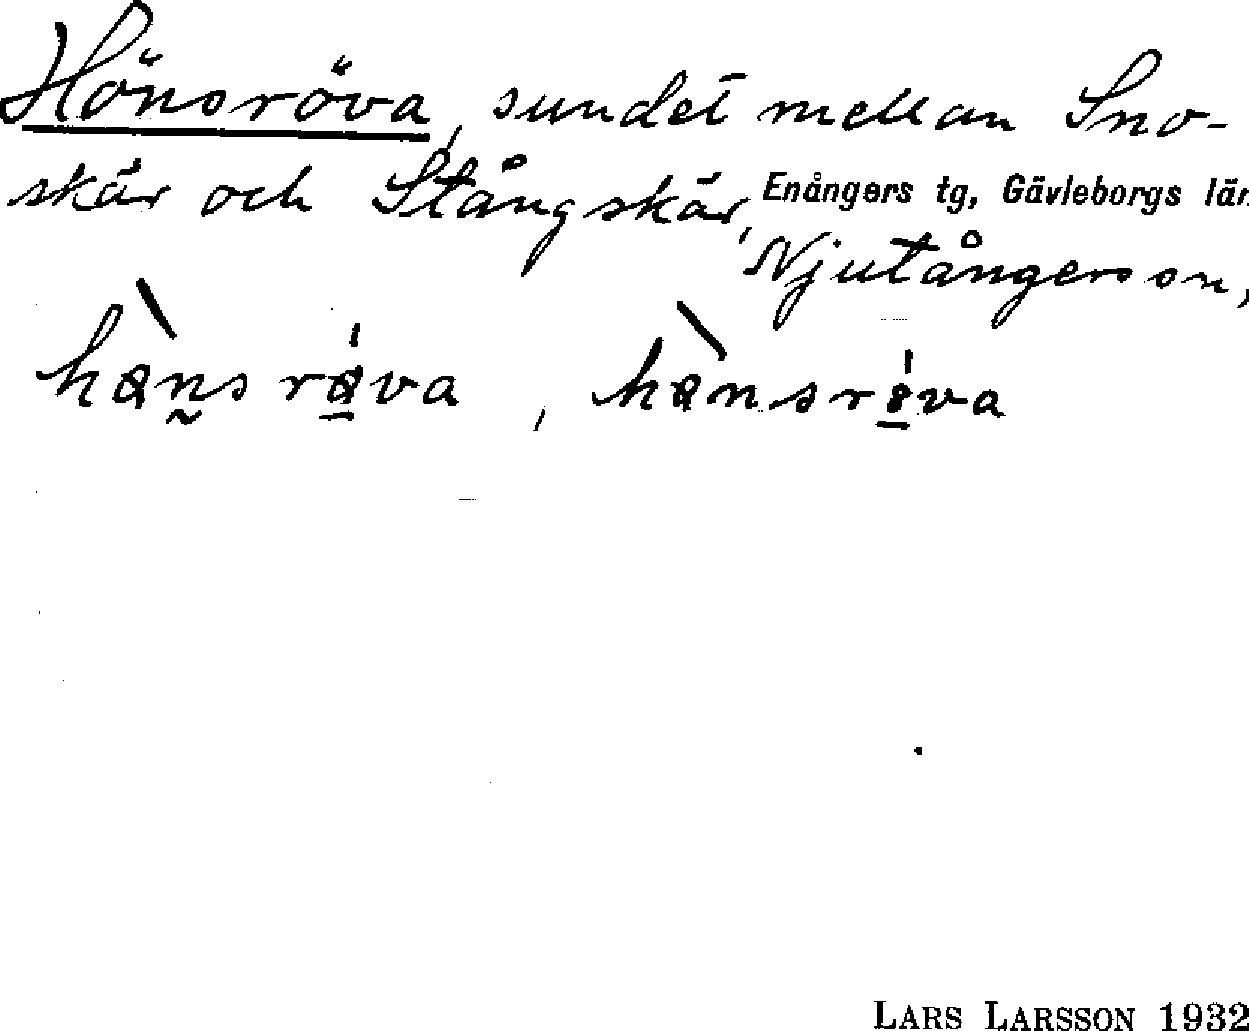 Hönsröva, sundet mellan Sno-
skär och Stångskär,
Enångers tg, Gävleborgs län
Njutångers sn,
LARS LARSSON 1932